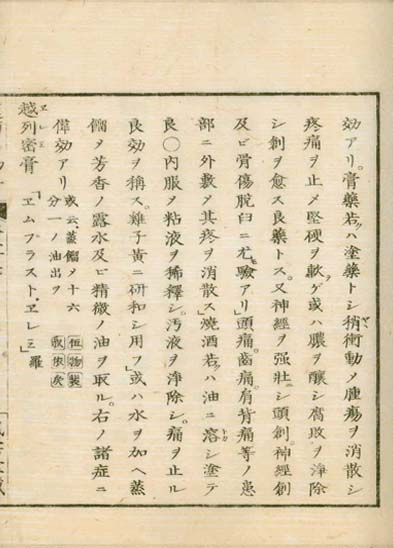 効アリ。膏藥若クハ塗藥トシ稍衝動メ腫瘍ヲ消散シ
疼痛ヲ止メ堅硬ヲ軟ケ或ハ膿ヲ釀シ腐敗ヲ浄除
シ創ヲ愈ス良藥トス。又神經ヲ强壯ニシ頭創。神經創
及ヒ骨傷脱臼ニ尤モ驗アリ」頭痛。齒痛。肩背痛等ノ患
部ニ外敷メ其疼ヲ消散ス」燒酒若クハ油ニ溶シ塗テ
良〇内服メ粘液ヲ稀釋シ。汚液ヲ浄除シ。痛ヲ止ル
良効ヲ稱ス。雞子黃ニ研和シ用フ」或ハ水ヲ加ヘ蒸
餾メ芳香ノ露水及ヒ精微ノ油ヲ取ル。右ノ諸症ニ
偉効アリ
或云、蒸餾メ十六
分一ノ油出ヲ
越列密膏
「ヱムプラスト、ヱレミ」羅